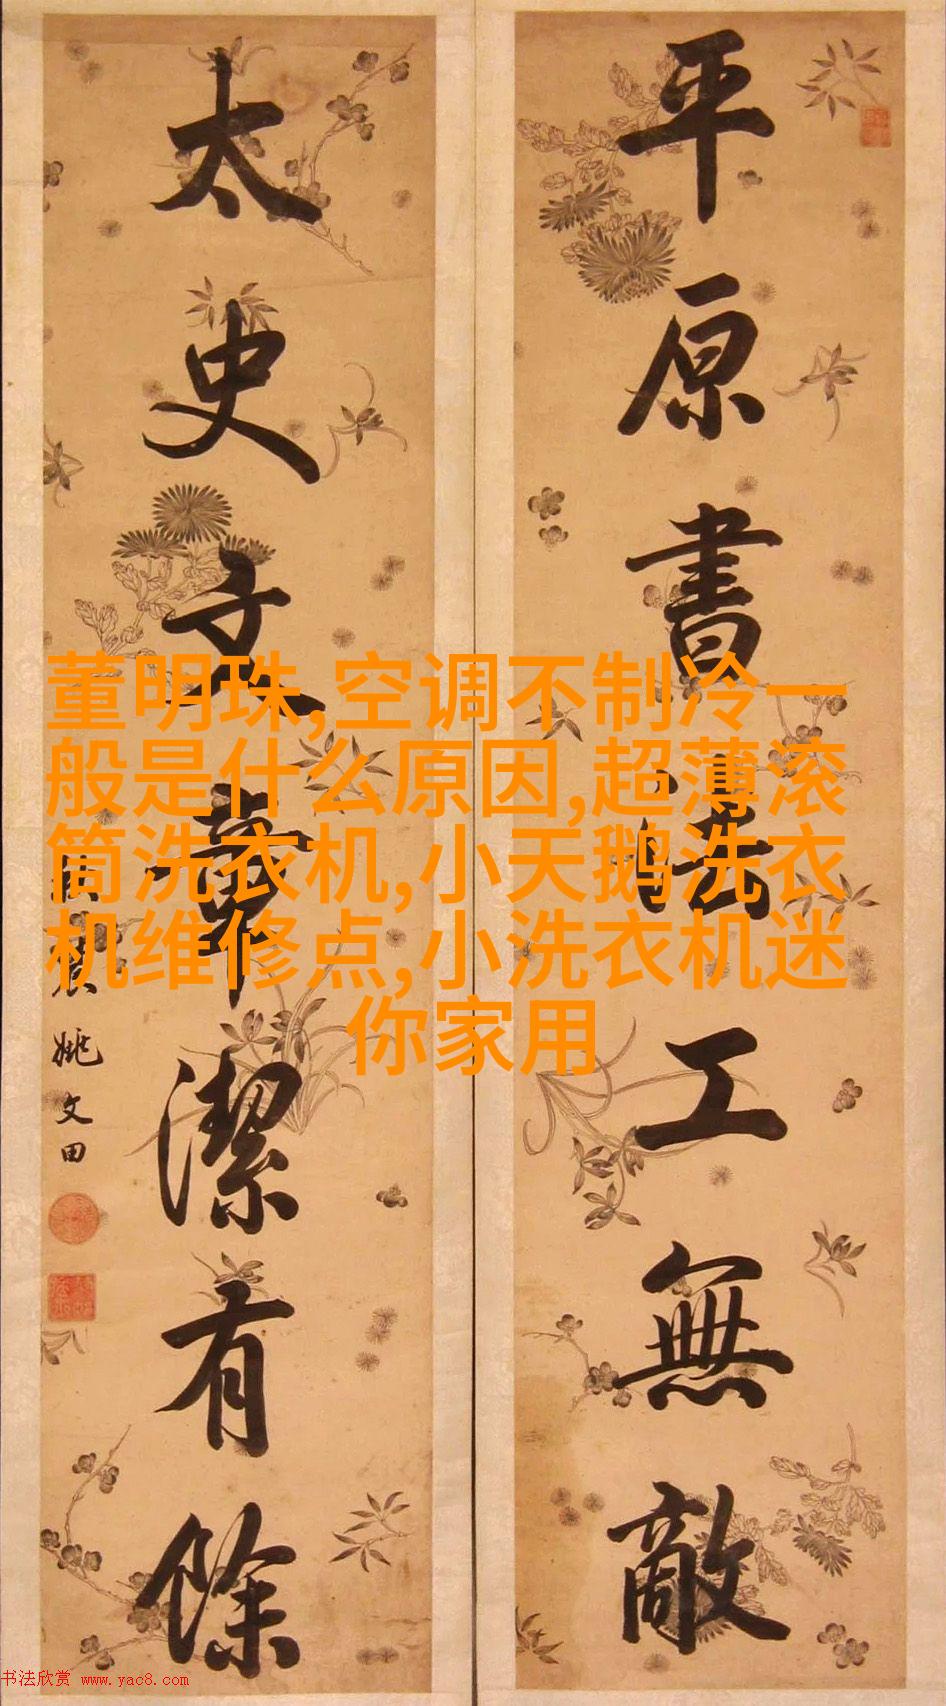 平原書法工無敵
太史文章潔有餘
姚文田
董明珠,空调不制冷一
般是什么原因,超薄滚
筒洗衣机,小天鹅洗衣
机维修点,小洗衣机迷
你家用
书法欣赏 www.yac8.com